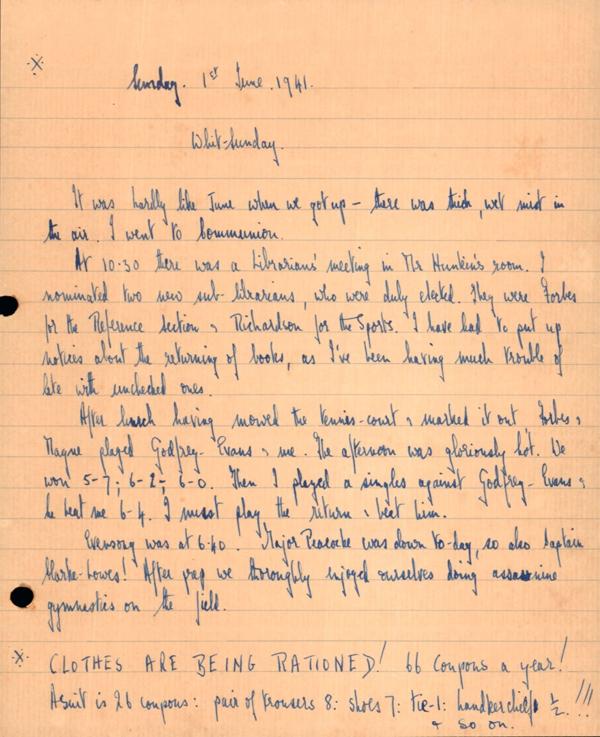 Sunday. 1st June. 1941.
Whit-Sunday.
It was hardly like June when we got up – there was thick, wet mist in
the air. I went to Communion.
At 10.30 there was a Librarians' meeting in Mr Hunkin's room. I
nominated two new sub-librarians, who were duly elected. They were Forbes
for the Reference Section & Richardson for the Sports. I have had to put up
notices about the returning of books, as I've been having much trouble of
late with unchecked ones.
After lunch having mowed the tennis-court & marked it out, Forbes &
Magne played Godfrey-Evans & me. The afternoon was gloriously hot. We
won 5-7; 6-2; 6-0. Then I played a singles against Godfrey-Evans &
he beat me 6-4. I must play the return & beat him.
Evensong was at 6.40. Major Peacocke was down to-day, so also Captain
Clarke-Lowes! After we thoroughly enjoyed ourselves doing assassnine
gymnastics on the field.
X CLOTHES ARE BEING RATIONED! 66 coupons a year!
A suit is 26 coupons: pair of trousers 8: shoes 7: tie-1: handkerchief ½.!!!
& so on.